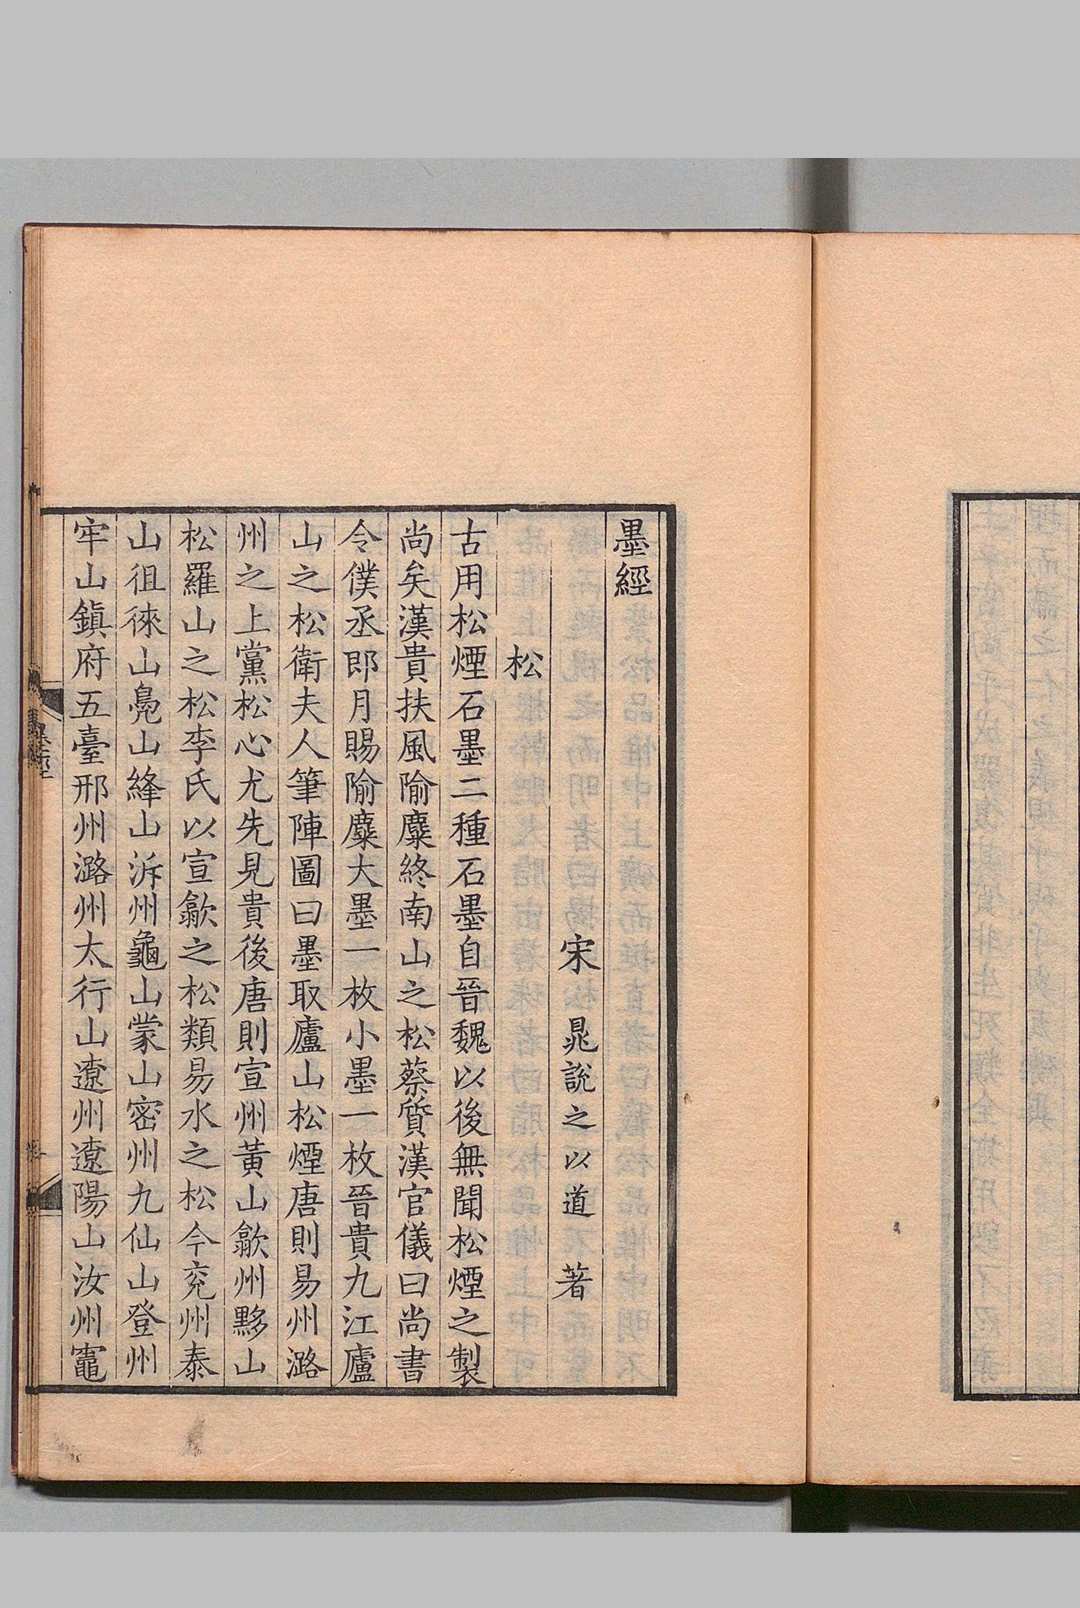 墨經
宋 晁說之以道 著
松
古用松煙石墨二種石墨自晉魏以後無聞松煙之製
尚矣漢貴扶風隃麋終南山之松蔡質漢官儀曰尚書
令僕丞郎月賜隃麋大墨一枚小墨一枚晉貴九江廬
山之松衛夫人筆陣圖曰墨取廬山松煙唐則易州潞
州之上黨松心尤先見貴後唐則宣州黃山歙州黟山
松羅山之松李氏以宣歙之松類易水之松今兖州泰
山徂徠山鳧山繹山沂州龜山蒙山密州九仙山登州
牢山鎮府五臺邢州潞州太行山遼州遼陽山汝州竈
墨經